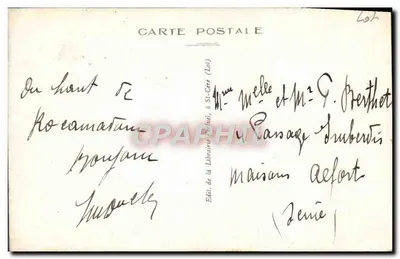 Lot
CARTE POSTALE
Du haut de
Rocamadour
Bonjour
Mme Melle et Mr P. Berthet
Passage Imberdis
Maisons Alfort
(Seine)
Edit. de la Librairie à St-Céré (Lot)
CPARTHI